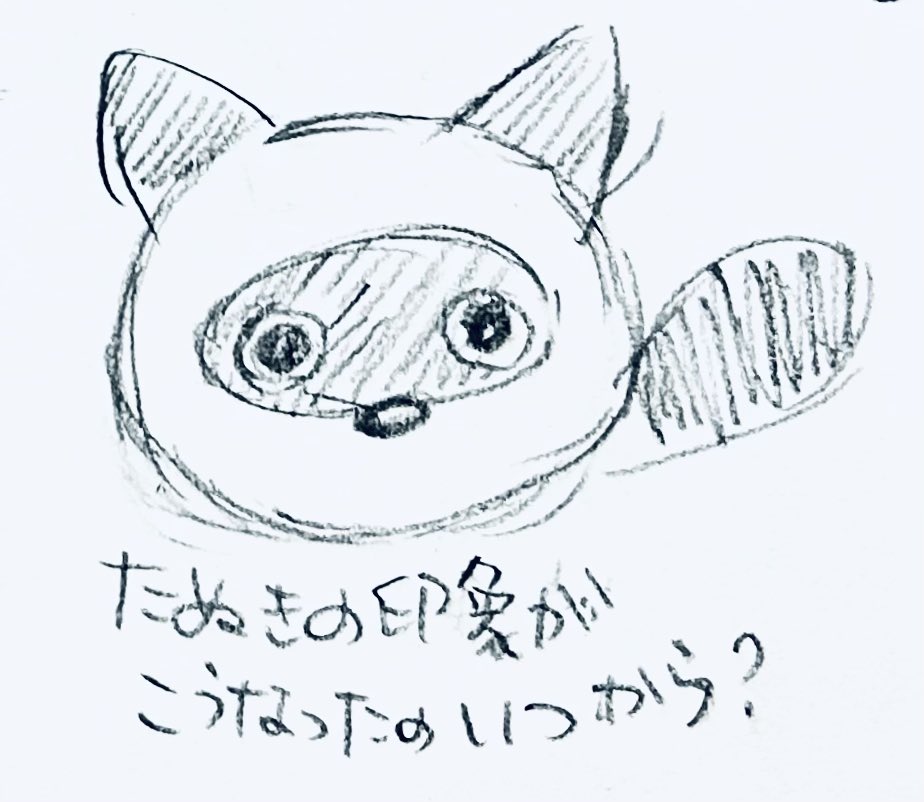 たぬきの印象が
こうなったのいつから?